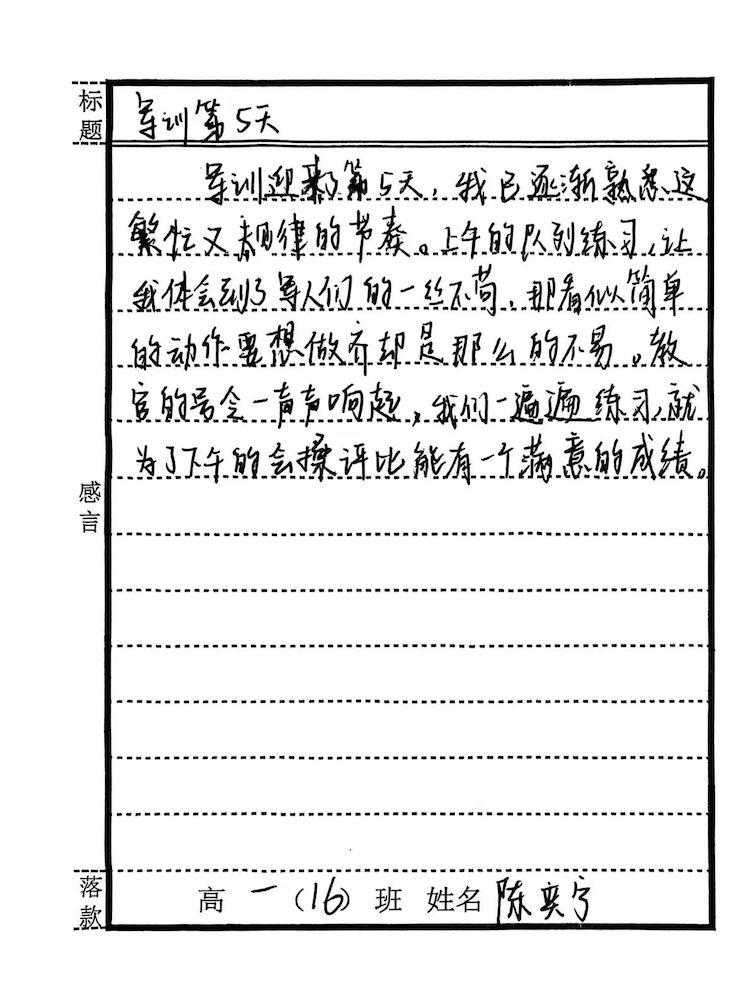 标题
军训第5天
军训迎来了第5天,我已逐渐熟悉这
繁忙又规律的节奏。上午的队列练习,让
我体会到了军人们的一丝不苟,那看似简单
的动作要想做齐却是那么的不易。教
官的号令一声声响起,我们一遍遍练习,就
为了下午的会操评比能有一个满意的成绩。
感言
落款
高一(16)班 姓名 陈奕宁